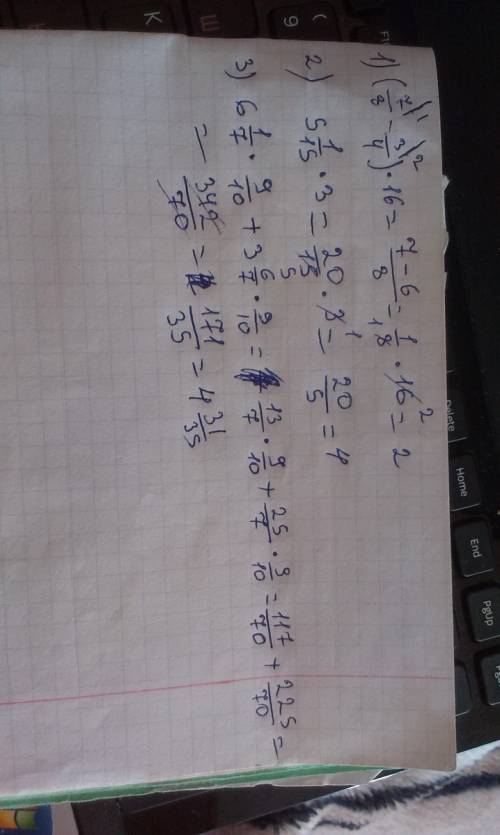 1) (7/8 \1 - 3/4 \2) · 16 = 7-6/8 = 1/8 · 16 = 2
2) 5 1/15 · 3 = 20/15 · 3 = 20/5 = 4
3) 6 1/7 · 9/10 + 3 6/7 · 9/10 = 13/7 · 9/10 + 25/7 · 9/10 = 117/70 + 225/70 =
= 342/70 = 171/35 = 4 31/35
Delete
Home
End
PgUp